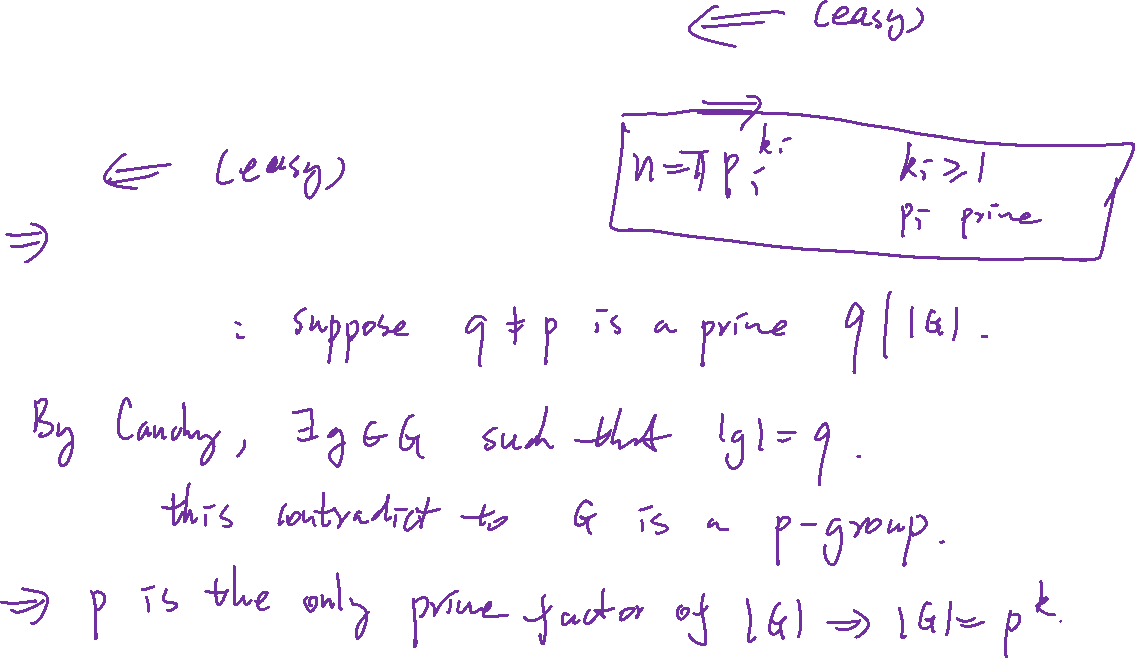 ⇐ (easy)
⇒
n = π pᵢ^kᵢ kᵢ ≥ 1
pᵢ prime
⇐ (easy)
⇒
: suppose q ≠ p is a prime q | |G|.
By Cauchy, ∃ g ∈ G such that |g| = q.
this contradict to G is a p-group.
⇒ p is the only prime factor of |G| ⇒ |G| = p^k.